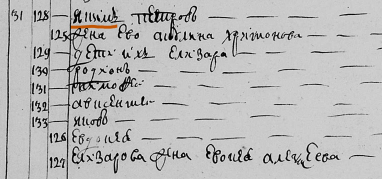 31 128 Яким Петровъ
125 жена Ево акилина харитонова
129 дети ихъ Елизара
130 родионъ
131 тимофей
132 авксентий
133 яковъ
126 Евдокея
127 Елизарова жена Евдокея алексеева